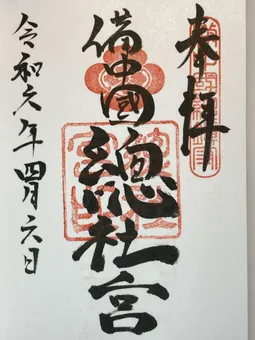 奉拝
備中國
總社宮
令和六年四月六日